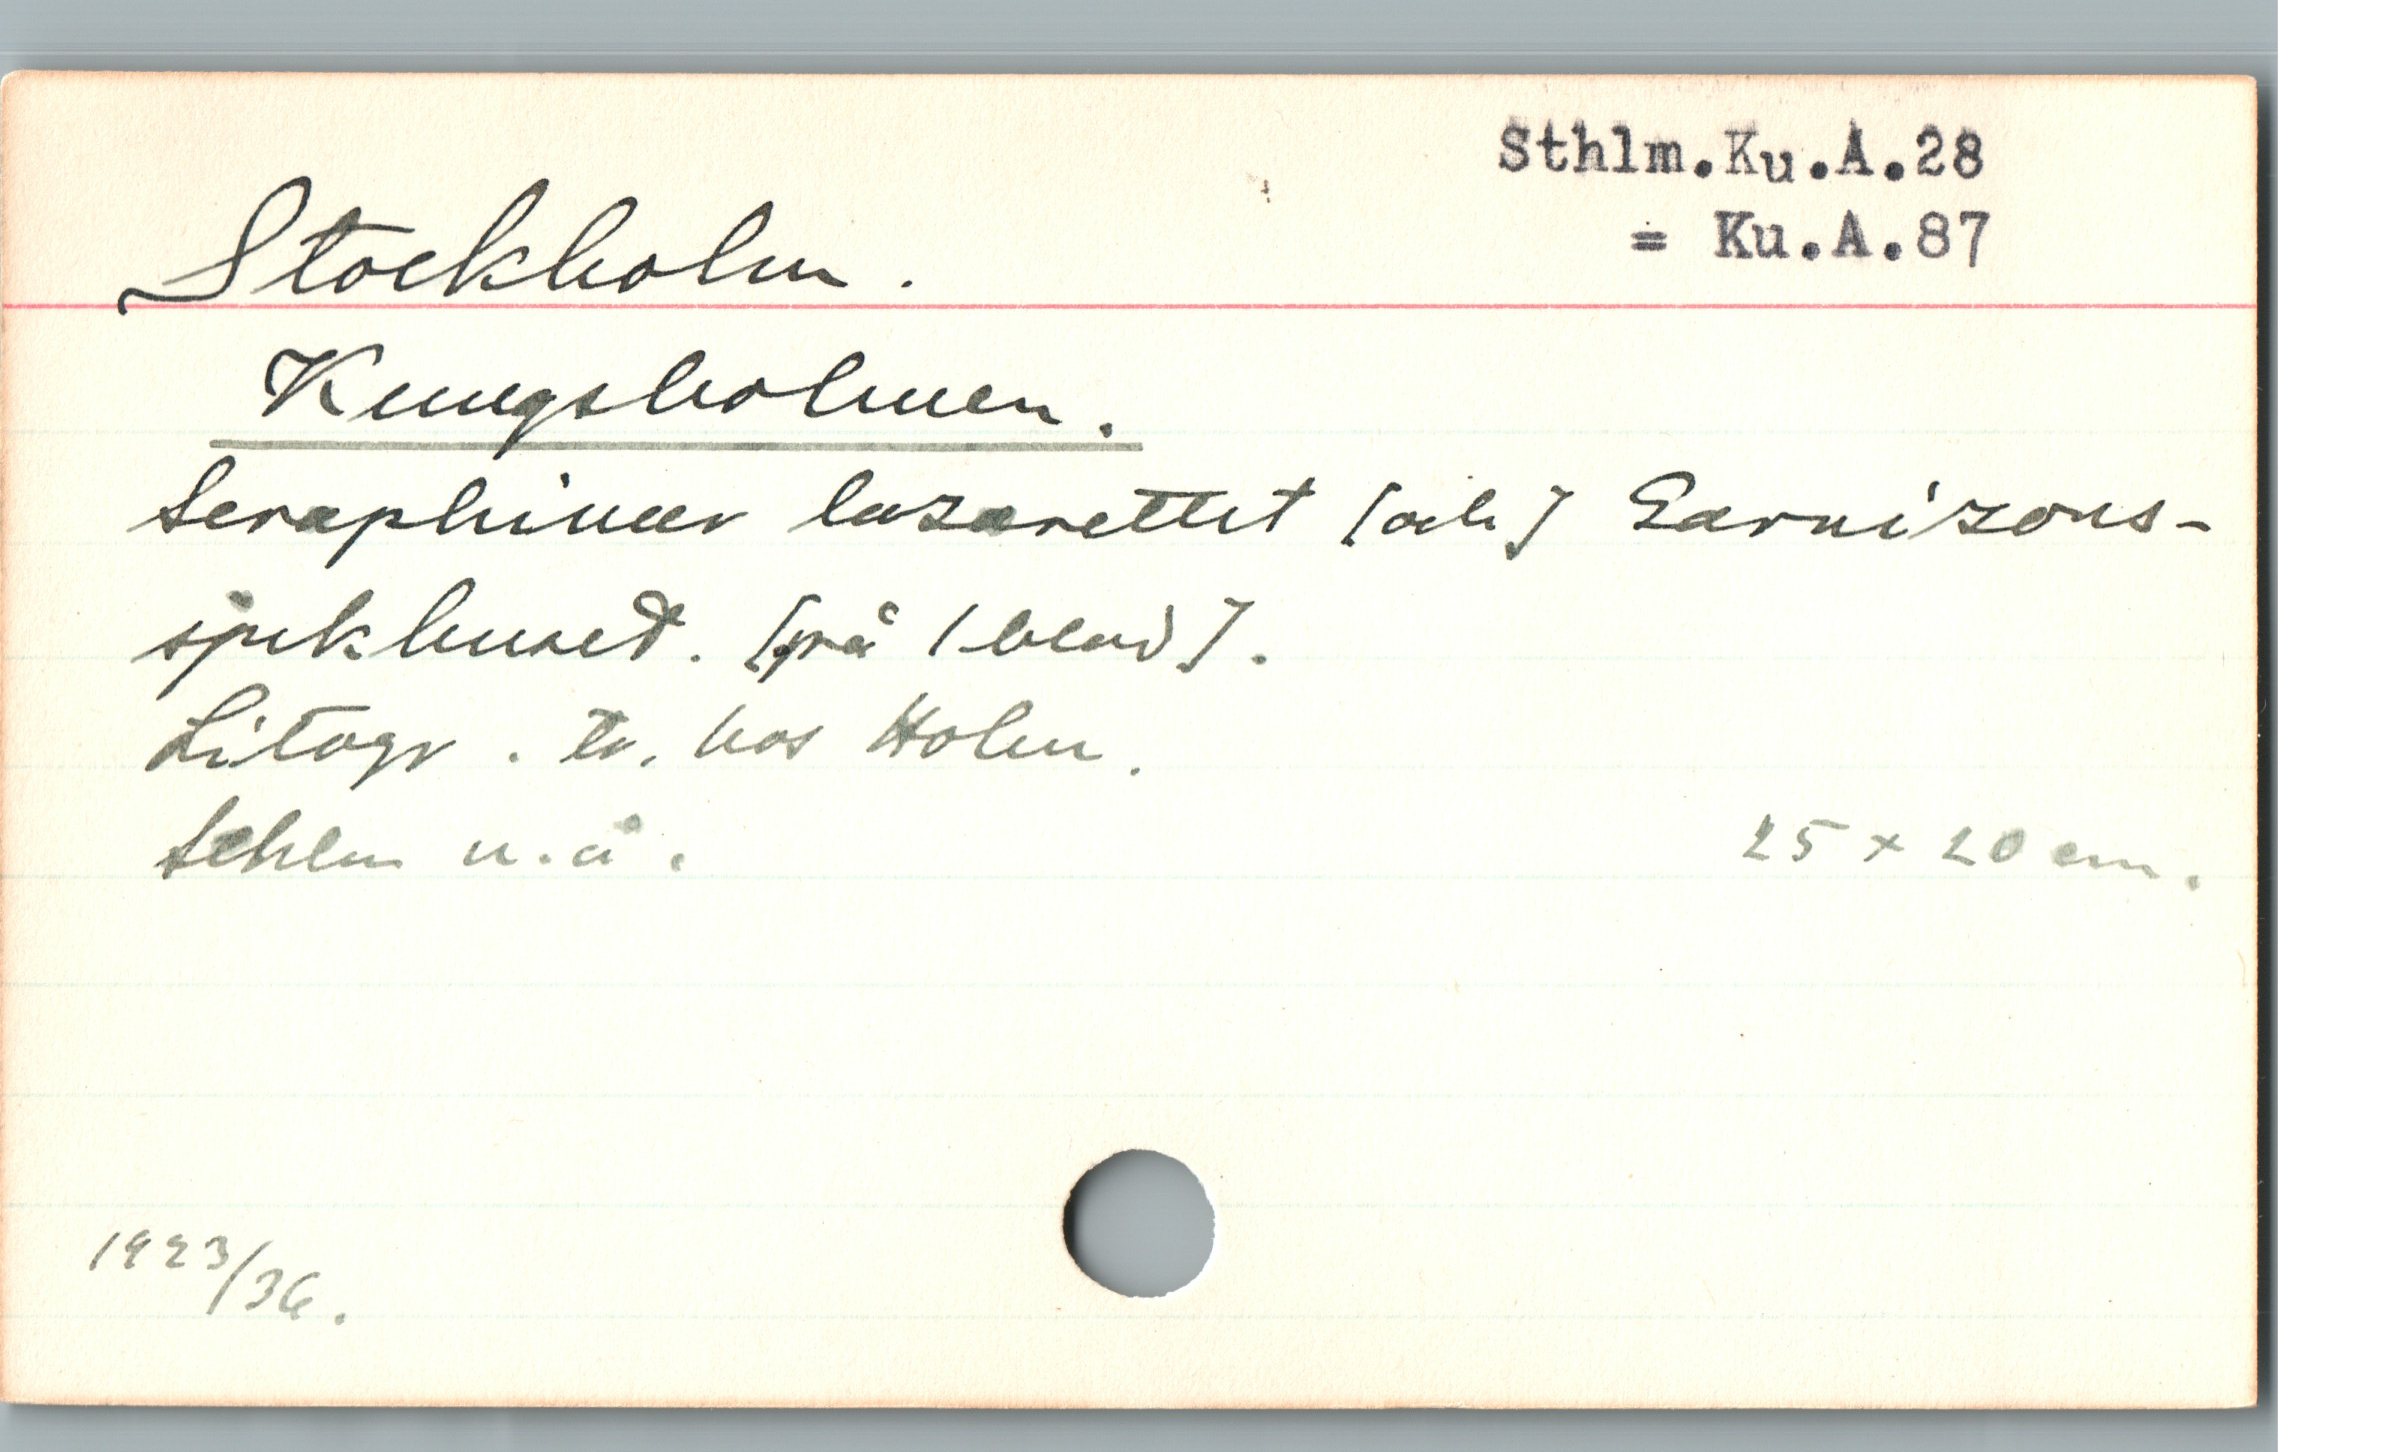 Sthlm.Ku.A.28
= Ku.A.87
Stockholm.
Kungsholmen.
Seraphimer lazarettet [och] Garnizons-
sjukhuset. [på 1 blad].
Litogr. tr. hos Holm.
Sthlm u.å.
25 x 20 cm.
1923/36.